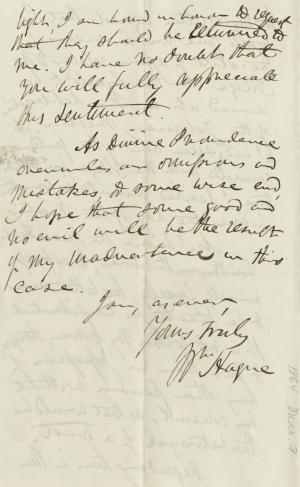 light, I am bound in honor to request
that they should be returned to
me. I have no doubt that
you will fully appreciate
this sentiment.
As Divine Providence
overrules our omissions and
mistakes, to some wise end,
I hope that some good and
no evil will be the result
of my inadvertance in this
case.
I am, as ever,
Yours truly
Wm Hague